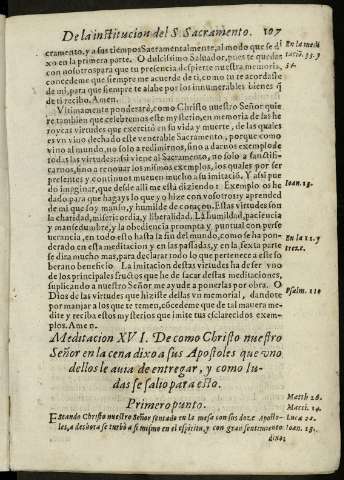 De la institucion del S. Sacramento. 107
cramento, y a sus tiempos Sacramentalmente, al modo que se di
xo en la primera parte. O dulcissimo Salvador, pues te quedas
con nosotros para que tu presencia despierte nuestra memoria,
concedeme que siempre me acuerde de ti, como tu te acordaste
de mi, para que siempre te alabe por los innumerables bienes q̃
de ti recibo. Amen.
Vltimamente ponderarè, como Christo nuestro Señor quie
re tambien que celebremos este mysterio, en memoria de las he
roycas virtudes que exercitò en su vida y muerte, de las quales
es vn vivo dechado este venerable Sacramento, porque como
vino al mundo, no solo a redimirnos, sino a darnos exemplo de
todas las virtudes: assi viene al Sacramento, no solo a sanctifi-
carnos, sino a renovar los mismos exemplos, los quales por ser
presentes y continuos mueven mucho a su imitaciõ. Y assi pue
do imaginar, que desde alli me està diziendo: Exemplo os he
dado para que hagays lo que yo hize con vosotros y aprended
de mi que soy manso, y humilde de coraçon. Estas virtudes son
la charidad, misericordia, y liberalidad. La humildad, paciencia
y mansedumbre, y la obediencia prompta y puntual con perse
verancia, en todo ello hasta la fin del mundo, como se ha pon-
derado en esta meditacion y en las passadas, y en la sexta parte
se dira mucho mas, para declarar todo lo que pertenece a este so
berano beneficio. La imitacion destas virtudes ha de ser vno
de los principales fructos que he de sacar destas meditaciones,
suplicando a nuestro Señor me ayude a ponerlas por obra. O
Dios de las virtudes que hiziste dellas vn memorial, dandote
por manjar a los que te temen, cõcedeme que de tal manera me-
dite y reciba estos mysterios que imite tus esclarecidos exem-
plos. Amen.
Meditacion XVI. De como Christo nuestro
Señor en la cena dixo a sus Apostoles que vno
dellos le avia de entregar, y como Iu-
das se salio para ello.
Primero punto.
Estando Christo nuestro Señor sentado en la mesa con sus doze Aposto-
les, a deshora se turbò a si mismo en el espiritu, y con gran sentimiento
dixo:
En la medi
Ioan. 13.
En la 11. y
Psalm. 110
Matth 26.
Marci. 14.
Lucæ 22.
Ioan. 13.